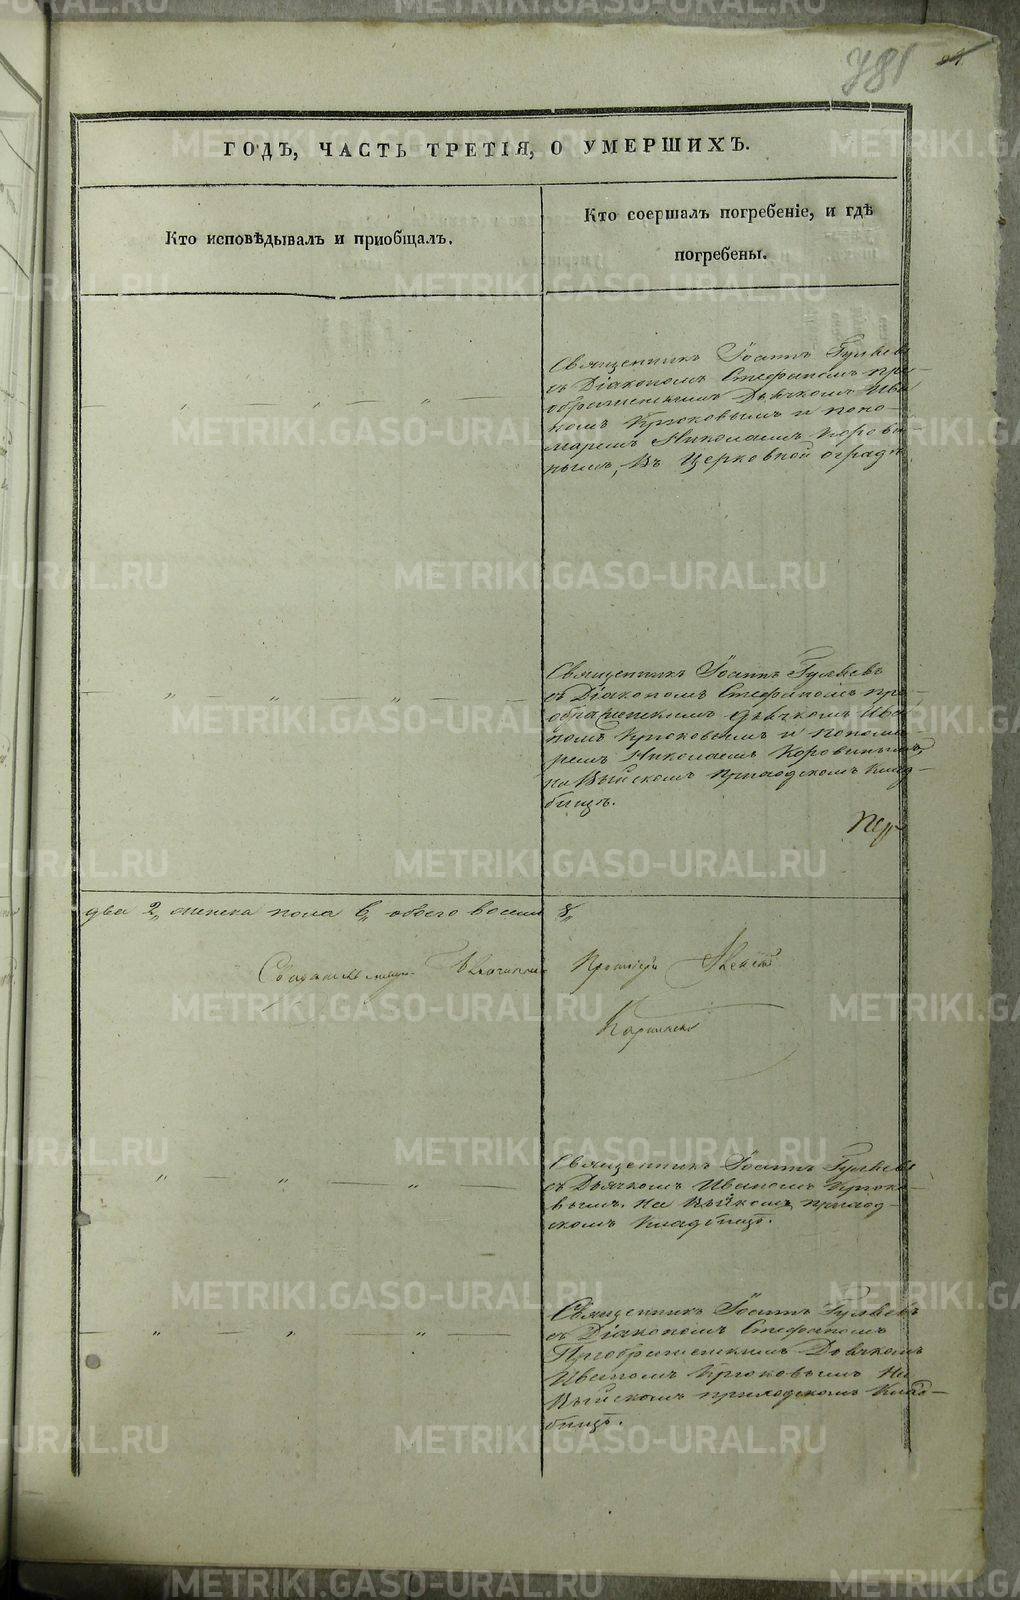 781
ГОДЪ, ЧАСТЬ ТРЕТІЯ, О УМЕРШИХЪ.
Кто исповѣдывалъ и пріобщалъ.
Кто соершалъ погребеніе, и гдѣ
погребены.
Священникъ Іоаннъ Гуляевъ
съ Діакономъ Стефаномъ Пре-
ображенскимъ Дьячкомъ Ива-
номъ Крюковымъ и поно-
маремъ Николаемъ Корови-
нымъ, Въ Церковной оградѣ
Священникъ Іоаннъ Гуляевъ
съ Діакономъ Стефаномъ Пре-
ображенскимъ дьячкомъ Ива-
номъ Крюковымъ и Понома-
ремъ Николаемъ Коровинымъ,
на Выйскомъ Приходскомъ Клад-
бищѣ.
два 2, женска пола 6, обоего восемь 8,
Протоіерей Алексій
Священникъ Іоаннъ Гуляевъ
съ Дьячкомъ Иваномъ Крюко-
вымъ. На Выйкомъ приход-
скомъ Кладбищѣ.
Священникъ Іоаннъ Гуляевъ
съ Діакономъ Стефаномъ
Преображенскимъ Дьячкомъ
Иваномъ Крюковымъ На
Выйскомъ приходскомъ Клад-
бищѣ.
METRIKI.GASO-URAL.RU